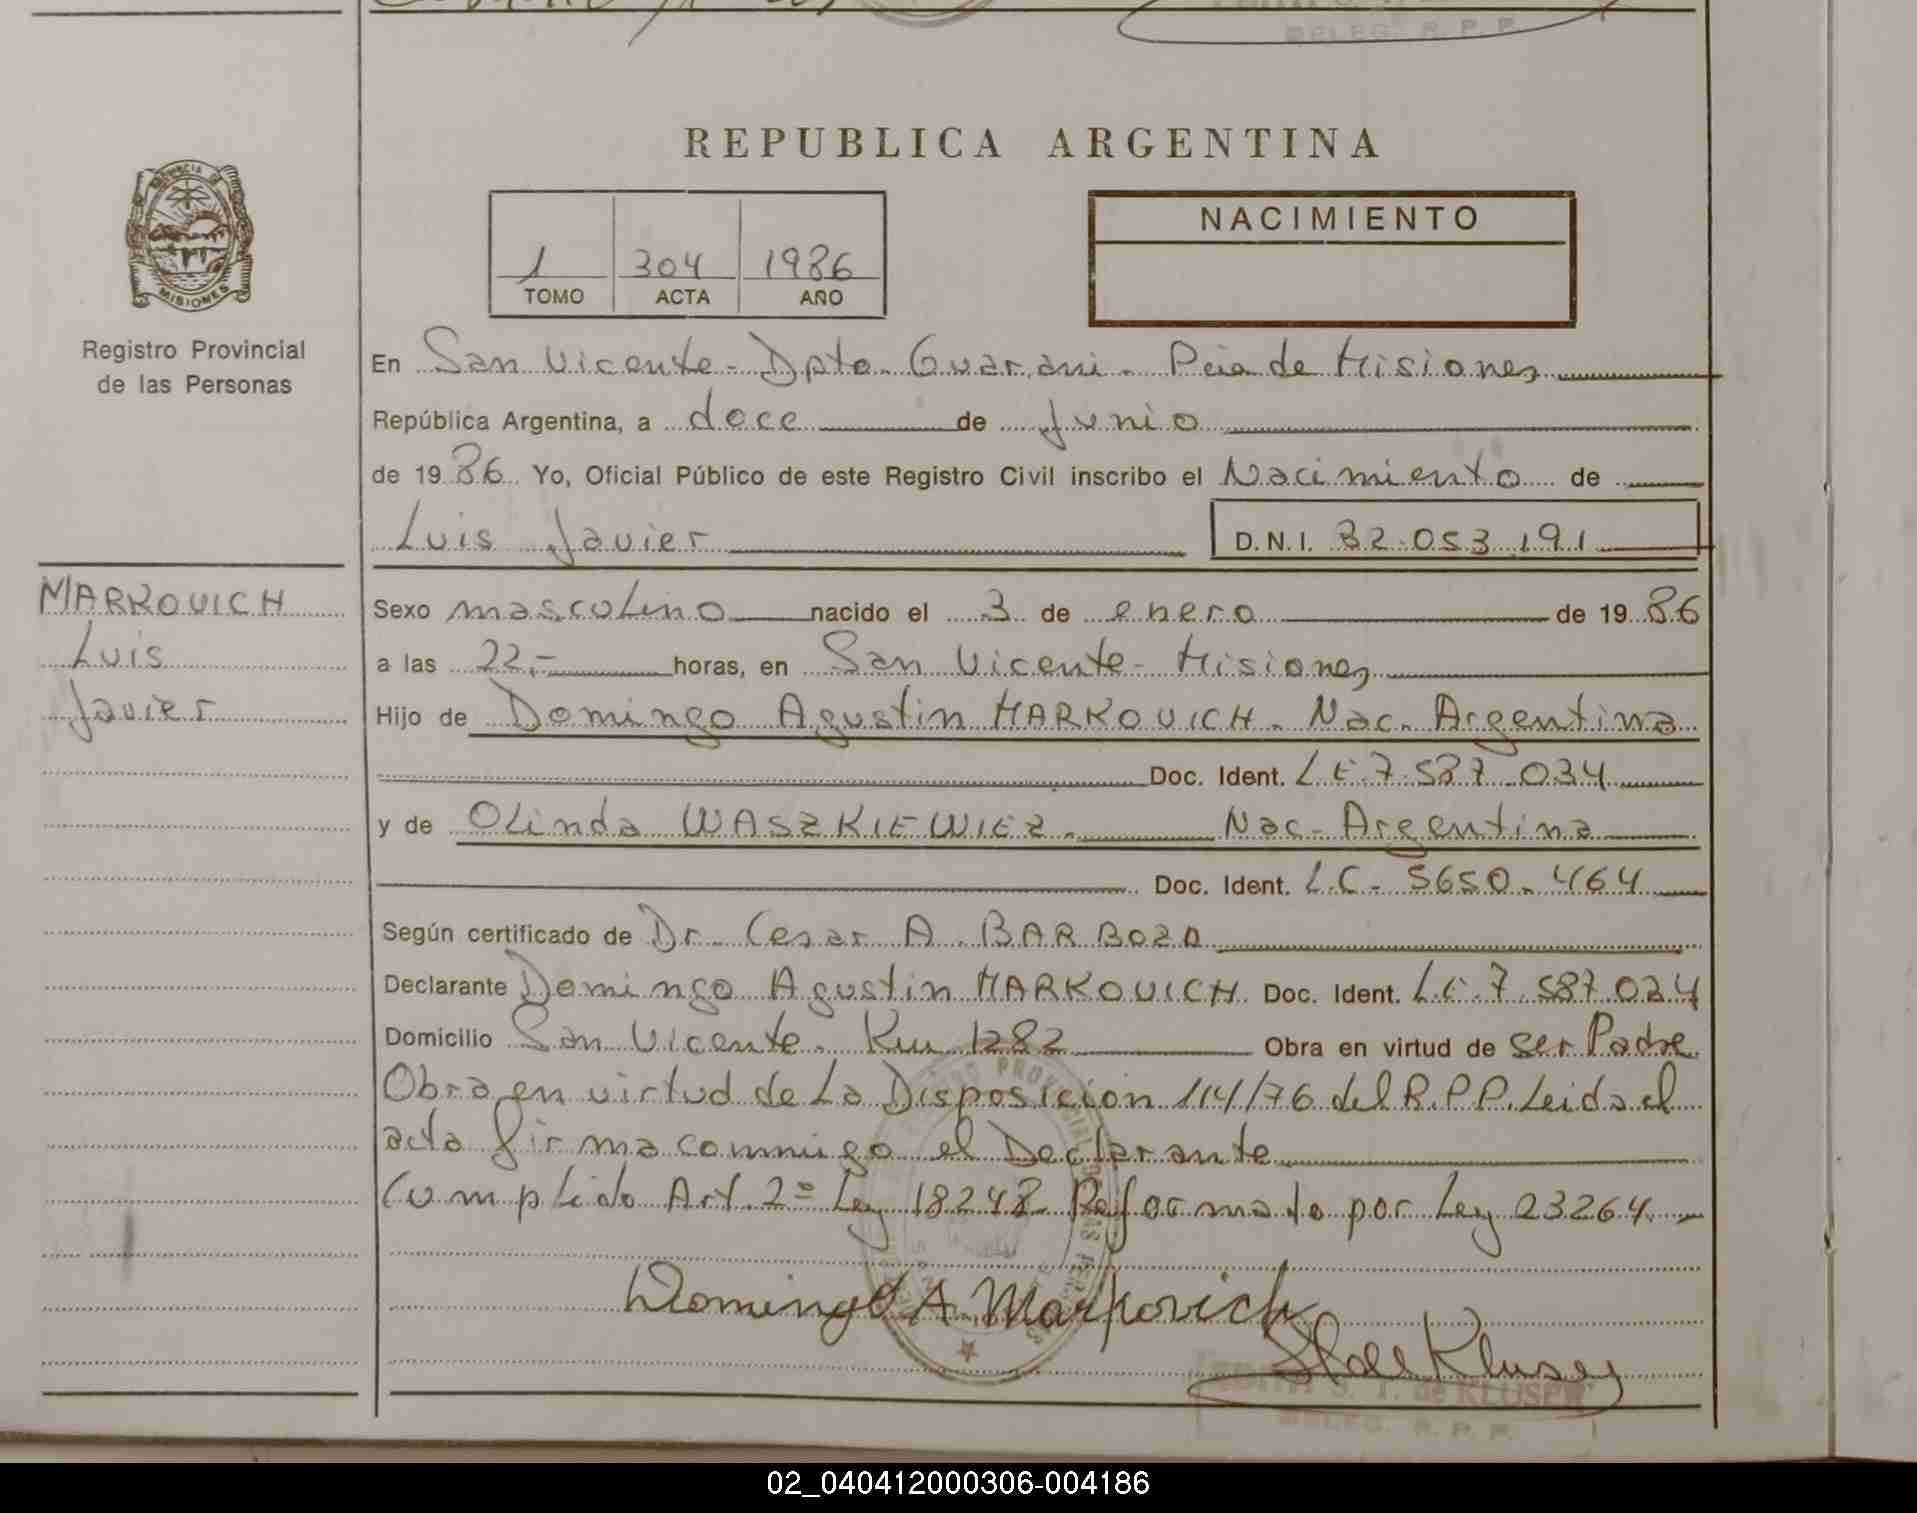 REPUBLICA ARGENTINA
PROVINCIA DE
MISIONES
Registro Provincial
de las Personas
NACIMIENTO
1 304 1986
TOMO ACTA AÑO
En San Vicente - Dpto. Guarani. Pcia de Misiones
República Argentina, a doce de Junio
de 1986 Yo, Oficial Público de este Registro Civil inscribo el Nacimiento de
Luis Javier D.N.I. 32.053.191
MARKOVICH
Luis
Javier
Sexo masculino nacido el 3 de enero de 1986
a las 22.- horas, en San Vicente - Misiones
Hijo de Domingo Agustin MARKOVICH. Nac. Argentina
Doc. Ident. L.E. 7.587.034
y de Olinda WASZKIEWIEZ. Nac. Argentina
Doc. Ident. L.C. 5650.464
Según certificado de Dr. Cesar A. BARBOZA
Declarante Domingo Agustin MARKOVICH. Doc. Ident. L.E. 7.587.034
Domicilio San Vicente. Km 1282 Obra en virtud de ser Padre
Obra en virtud de la Disposicion 114/76 del R.P.P. Leida el
acta firma conmigo el Declarante
Cumplido Art. 2º Ley 18248 Reformado por Ley 23264.
Domingo A. Markovich
S. T. de KLUSER
DELEG. R. P. P.
02_040412000306-004186